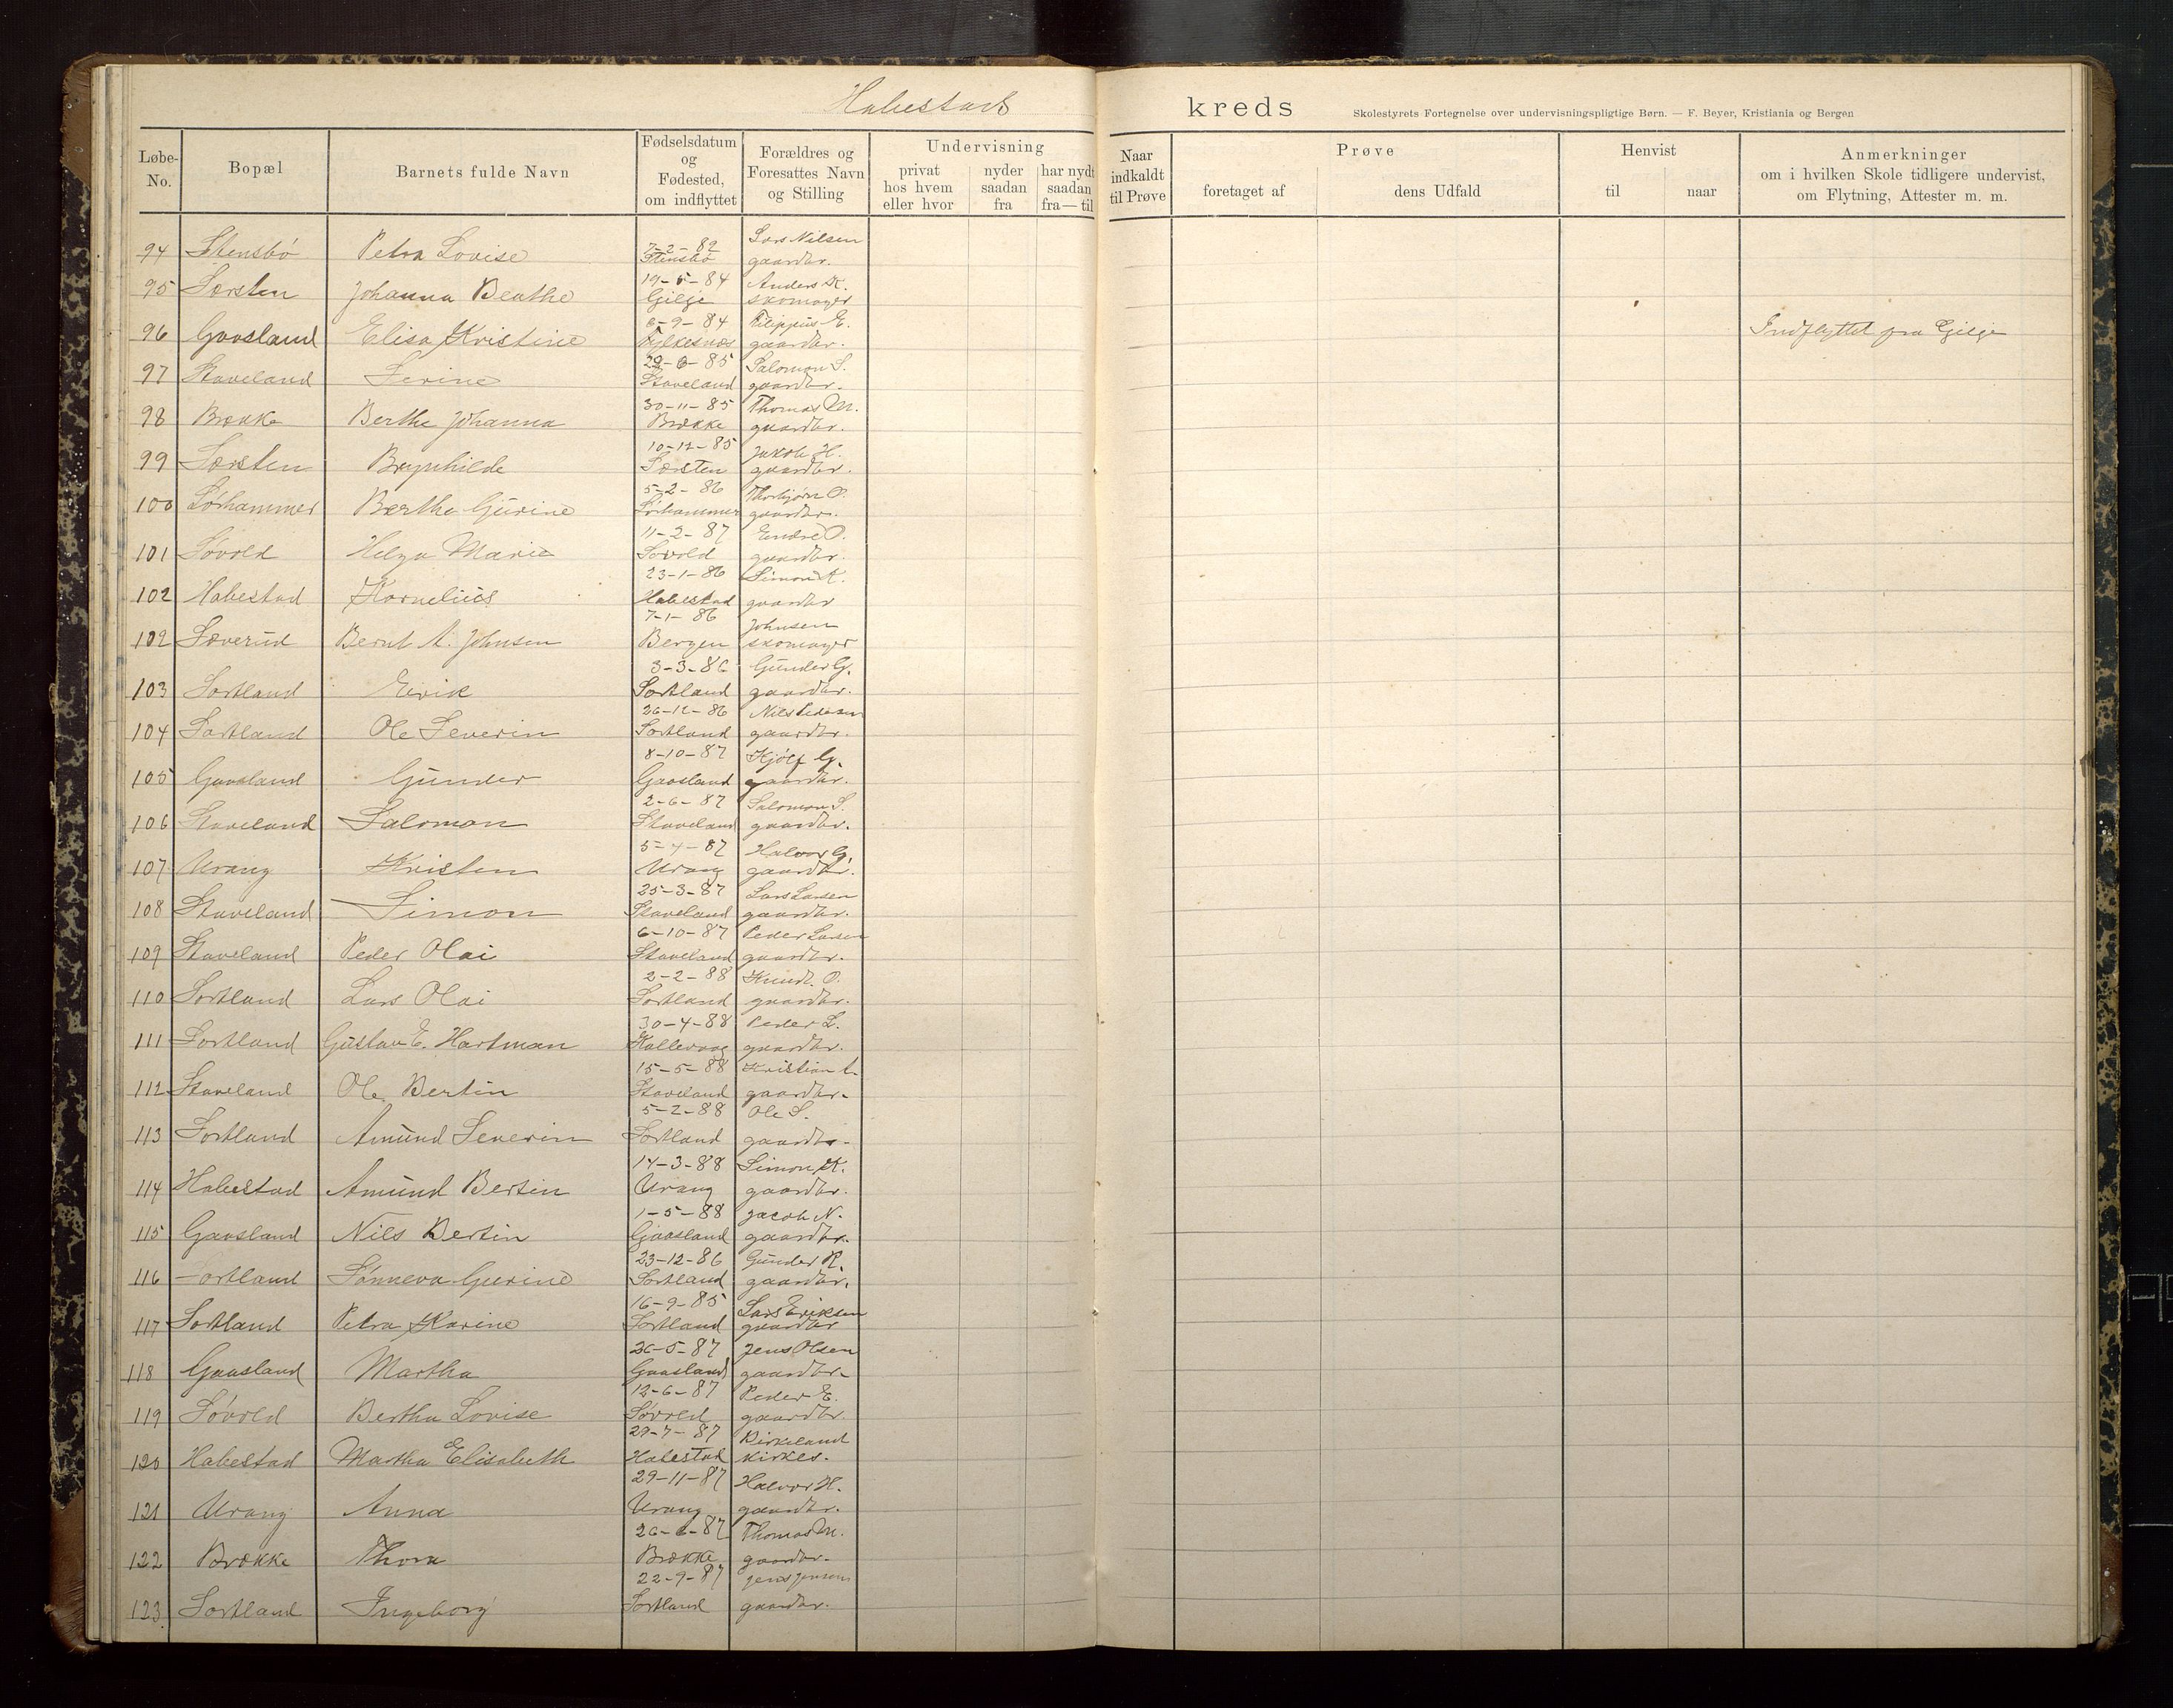 Habestads kreds
Skolestyrets Fortegnelse over undervisningspligtige Børn. — F. Beyer, Kristiania og Bergen
Løbe-No. Bopæl Barnets fulde Navn Fødselsdatum og Fødested, om indflyttet Forældres og Foresattes Navn og Stilling Undervisning privat hos hvem eller hvor nyder saadan fra har nydt saadan fra—til Naar indkaldt til Prøve Prøve foretaget af dens Udfald Henvist til naar Anmerkninger om i hvilken Skole tidligere undervist, om Flytning, Attester m. m.
7-2-82 Lars Nilsen
94 Stensbø Petra Lovise Stensbø gaardbr.
19-5-84 Anders K.
95 Særsten Johanna Beathe Gilje skomager
6-9-84 Filippus E.
96 Gaasland Elisa Kristine Fylkesnæs gaardbr. Indflyttet fra Gilje
29-6-85 Salomon S.
97 Staveland Serine Staveland gaardbr.
30-11-85 Thomas M.
98 Brække Berthe Johanna Brække gaardbr.
10-12-85 Jakob H.
99 Særsten Brynhilde Særsten gaardbr.
5-2-86 Thorbjørn O.
100 Sørhammer Berthe Gurine Sørhammer gaardbr.
11-2-87 Endre O.
101 Søvold Helga Marie Søvold gaardbr.
23-1-86 Simon K.
102 Habestad Kornelius Habestad gaardbr
7-1-86 Johnsen
102 Sæverud Bernt A. Johnsen Bergen skomager
3-3-86 Gunder G.
103 Sortland Eirik Sortland gaardbr.
26-12-86 Nils Pedersen
104 Sortland Ole Severin Sortland gaardbr.
8-10-87 Kjølf G.
105 Gaasland Gunder Gaasland gaardbr.
2-6-87 Salomon S.
106 Staveland Salomon Staveland gaardbr.
5-4-87 Halvor G.
107 Urang Kristen Urang gaardbr.
25-3-87 Lars Larsen
108 Staveland Simon Staveland gaardbr.
6-10-87 Peder Larsen
109 Staveland Peder Olai Staveland gaardbr.
2-2-88 Knud. O.
110 Sortland Lars Olai Sortland gaardbr.
30-4-88 Peder L.
111 Sortland Gustav E. Hartman Kallevaag gaardbr.
15-5-88 Kristian
112 Staveland Ole Bertin Staveland gaardbr.
5-2-88 Ole S.
113 Sortland Amund Severin Sortland gaardbr.
14-3-88 Simon K.
114 Habestad Amund Bertin Urang gaardbr.
1-5-88 Jacob N.
115 Gaasland Nils Bertin Gaasland gaardbr.
23-12-86 Gunder R.
116 Sortland Sønneva Gurine Sortland gaardbr.
16-9-85 Lars Eriksen
117 Sortland Petra Karine Sortland gaardbr
26-5-87 Jens Olsen
118 Gaasland Martha Gaasland gaardbr.
12-6-87 Peder E.
119 Søvold Bertha Lovise Søvold gaardbr.
29-7-87 Birkeland
120 Habestad Martha Elisabeth Habestad kirkes.
29-11-87 Halvor H.
121 Urang Anna Urang gaardbr.
26-6-87 Thomas M.
122 Brække Thora Brække gaardbr.
22-9-87 Jens Jensen
123 Sortland Ingeborg Sortland gaardbr.